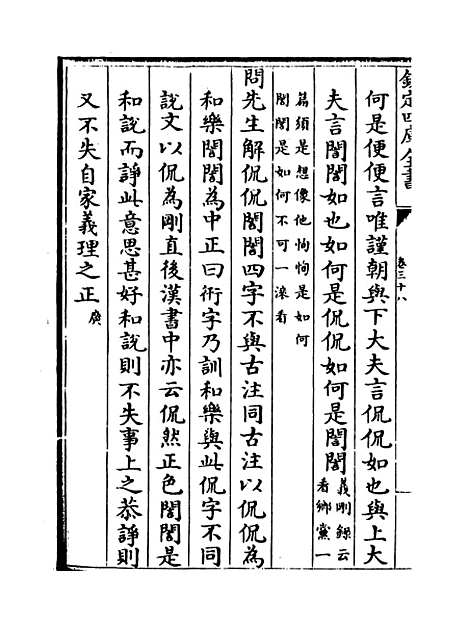 欽定四庫全書
卷三十八
何是便便言唯謹朝與下大夫言侃侃如也與上大
夫言誾誾如也如何是侃侃如何是誾誾義剛錄云看鄉黨一
篇須是想像他恂恂是如何
誾誾是如何不可一滚看
問先生解侃侃誾誾四字不與古注同古注以侃侃為
和樂誾誾為中正曰衎字乃訓和樂與此侃字不同
說文以侃為剛直後漢書中亦云侃然正色誾誾是
和說而諍此意思甚好和說則不失事上之恭諍則
又不失自家義理之正廣